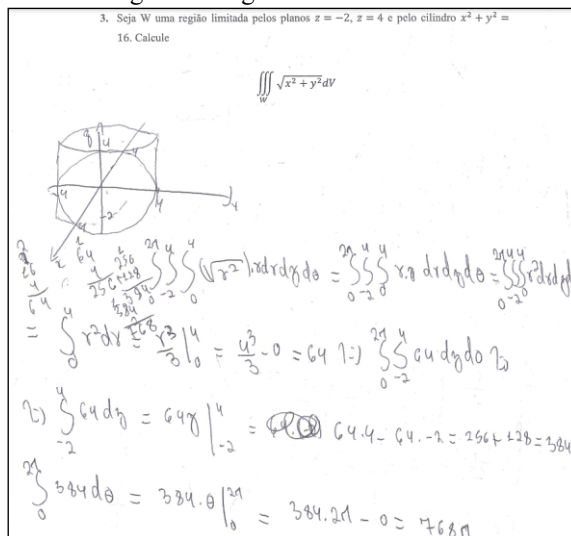 3. Seja W uma região limitada pelos planos z = −2, z = 4 e pelo cilindro x² + y² =
16. Calcule
∭_W √(x² + y²) dV
8 4
-4 4 4
-2
-4 x
2 26 4 64
64 4 256
256 +128 384
384 2 768
∫₀^{2π} ∫₋₂⁴ ∫₀⁴ (√r²).r dr dz dθ = ∫₀^{2π} ∫₋₂⁴ ∫₀⁴ r.r dr dz dθ = ∫₀^{2π} ∫₋₂⁴ ∫₀⁴ r² dr dz dθ
= ∫₀⁴ r² dr = r³/3 |₀⁴ = 4³/3 - 0 = 64 => ∫₀^{2π} ∫₋₂⁴ 64 dz dθ =>
=> ∫₋₂⁴ 64 dz = 64z |₋₂⁴ = 64.4 - 64.-2 = 256 + 128 = 384
∫₀^{2π} 384 dθ = 384.θ |₀^{2π} = 384.2π - 0 = 768π